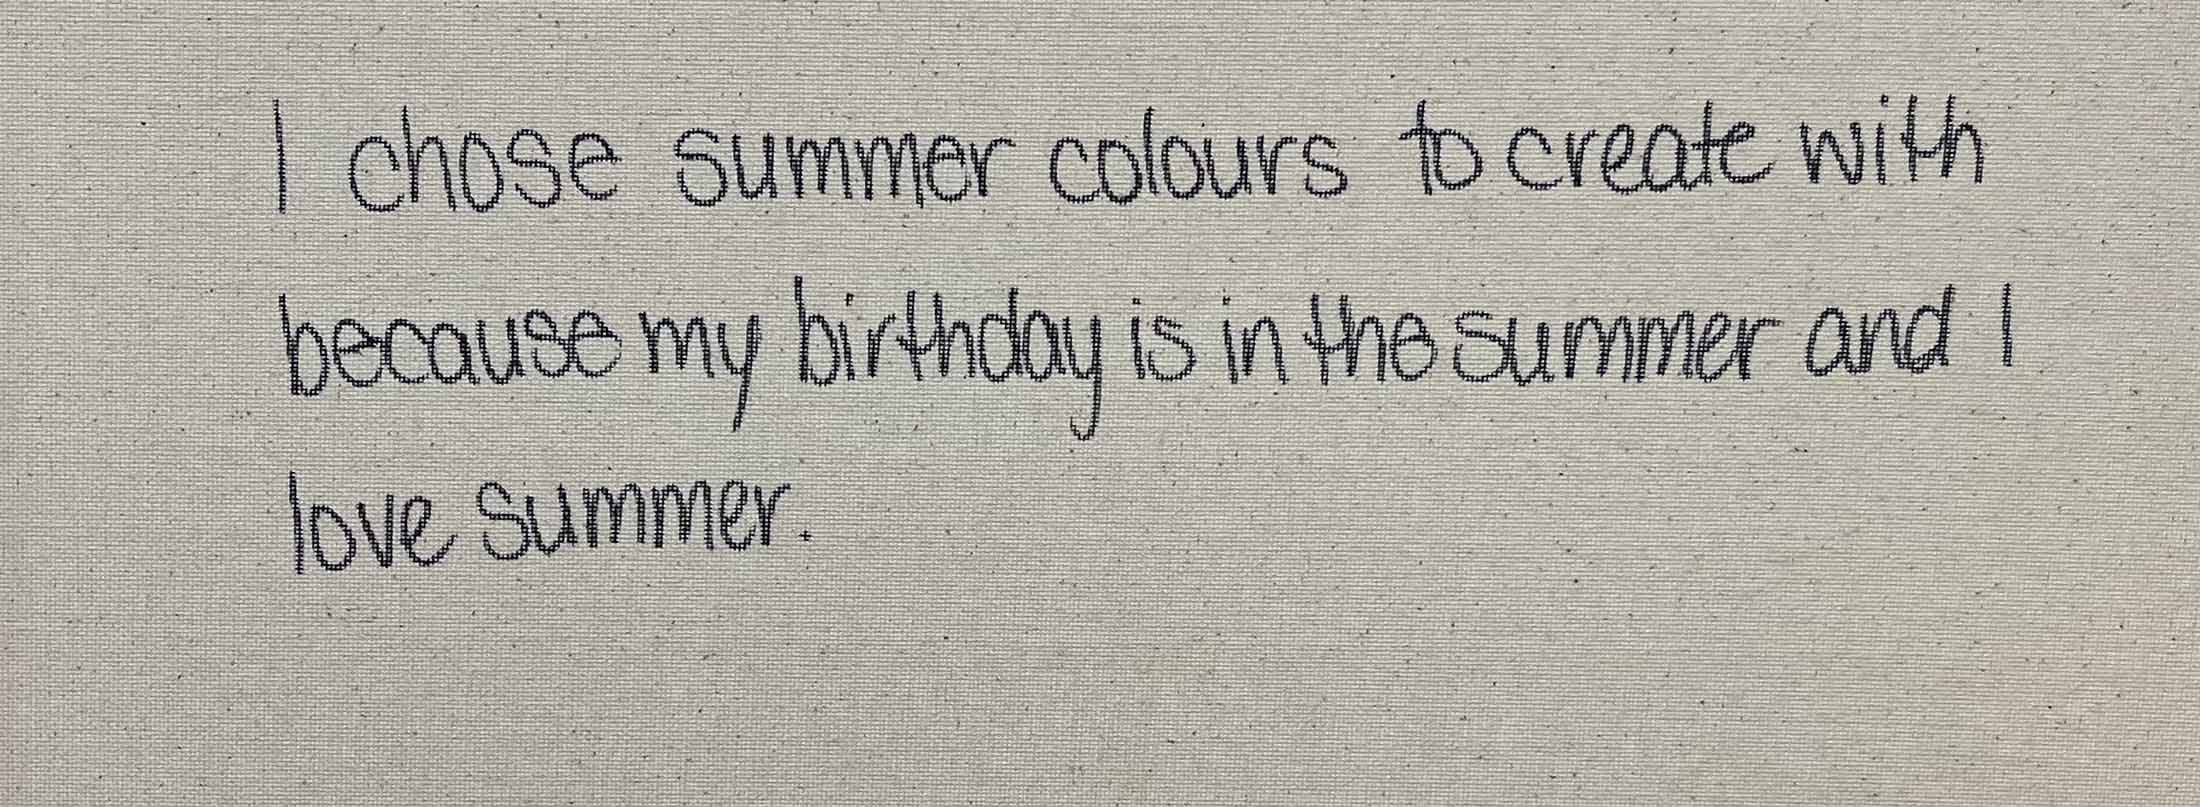 I chose summer colours to create with
because my birthday is in the summer and I
love summer.